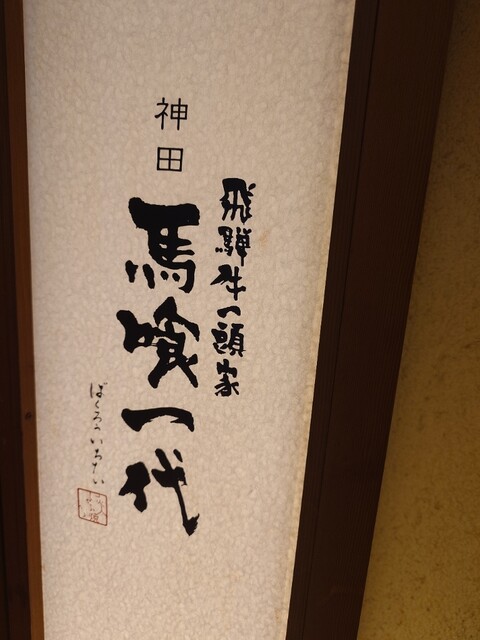 飛騨牛一頭家
神田
馬喰一代
ばくろういちだい